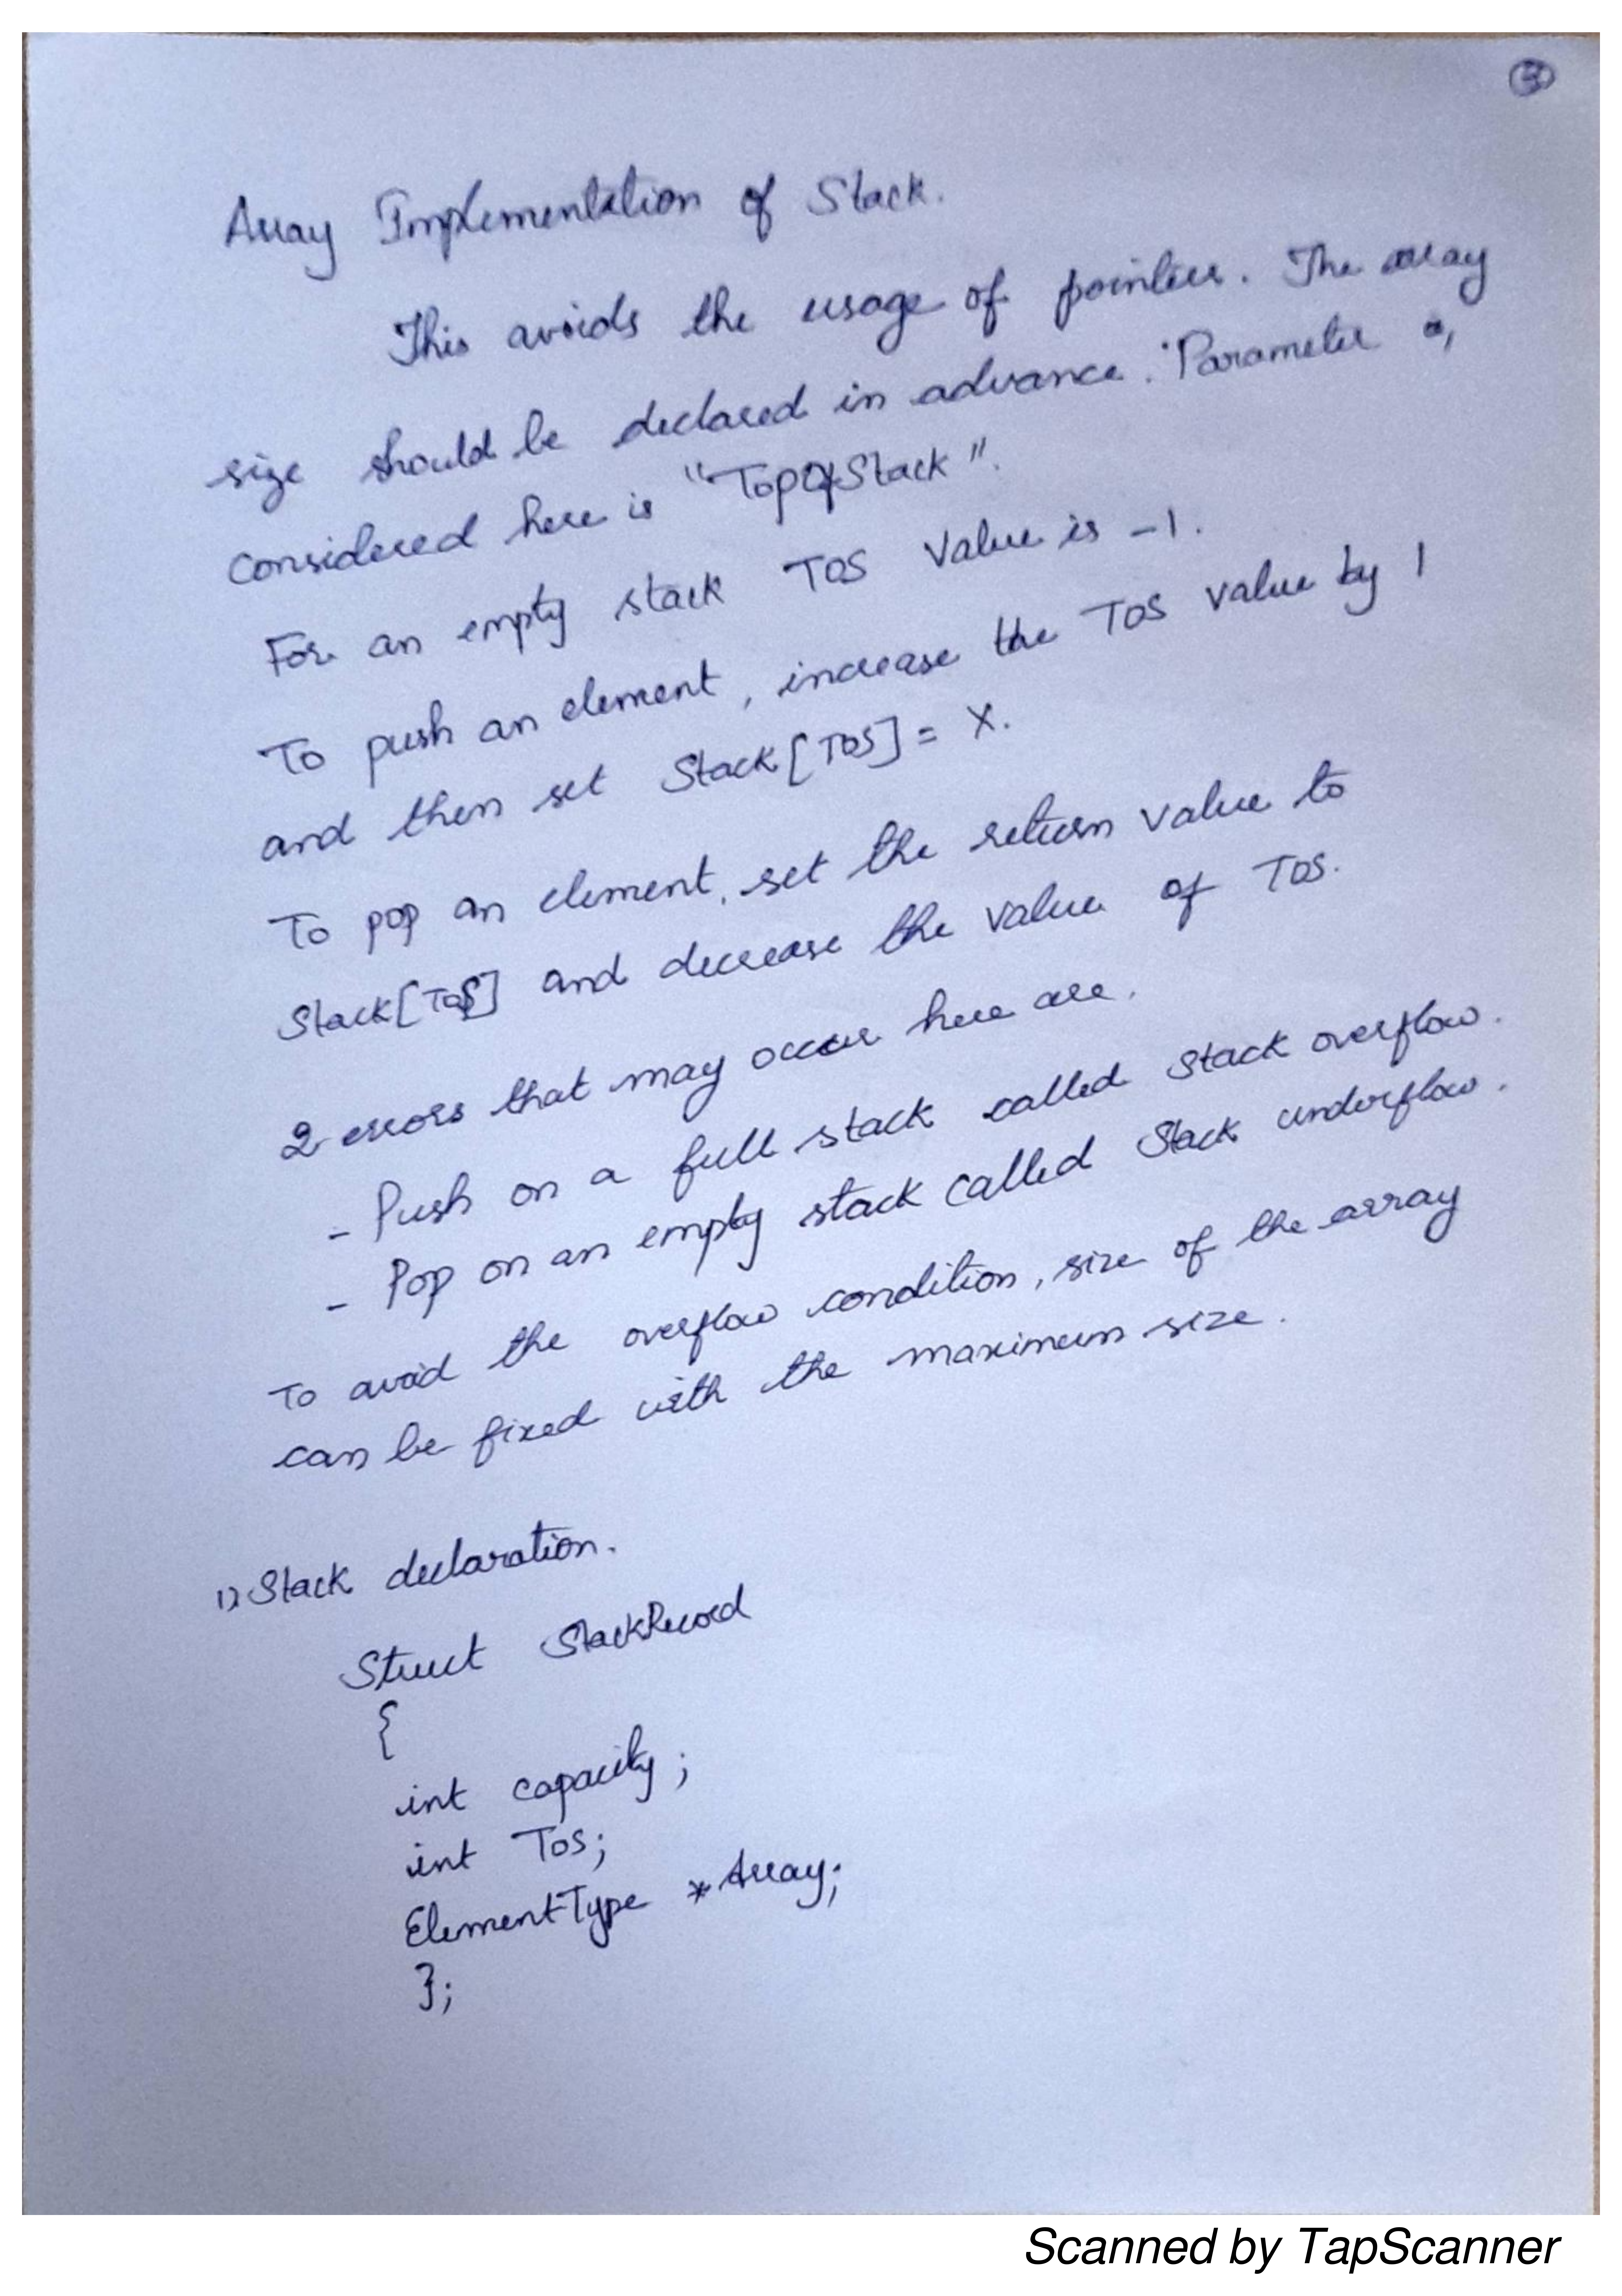 3
Array Implementation of Stack.
This avoids the usage of pointers. The array
size should be declared in advance. Parameter
considered here is "TopOfStack".
For an empty stack TOS value is -1.
To push an element, increase the TOS value by 1
and then set Stack[TOS] = X.
To pop an element, set the return value to
Stack[TOS] and decrease the value of TOS.
2 errors that may occur here are.
- Push on a full stack called stack overflow.
- Pop on an empty stack called Stack underflow.
To avoid the overflow condition, size of the array
can be fixed with the maximum size.
1) Stack declaration.
Struct StackRecord
{
int capacity;
int TOS;
ElementType *Array;
};
Scanned by TapScanner